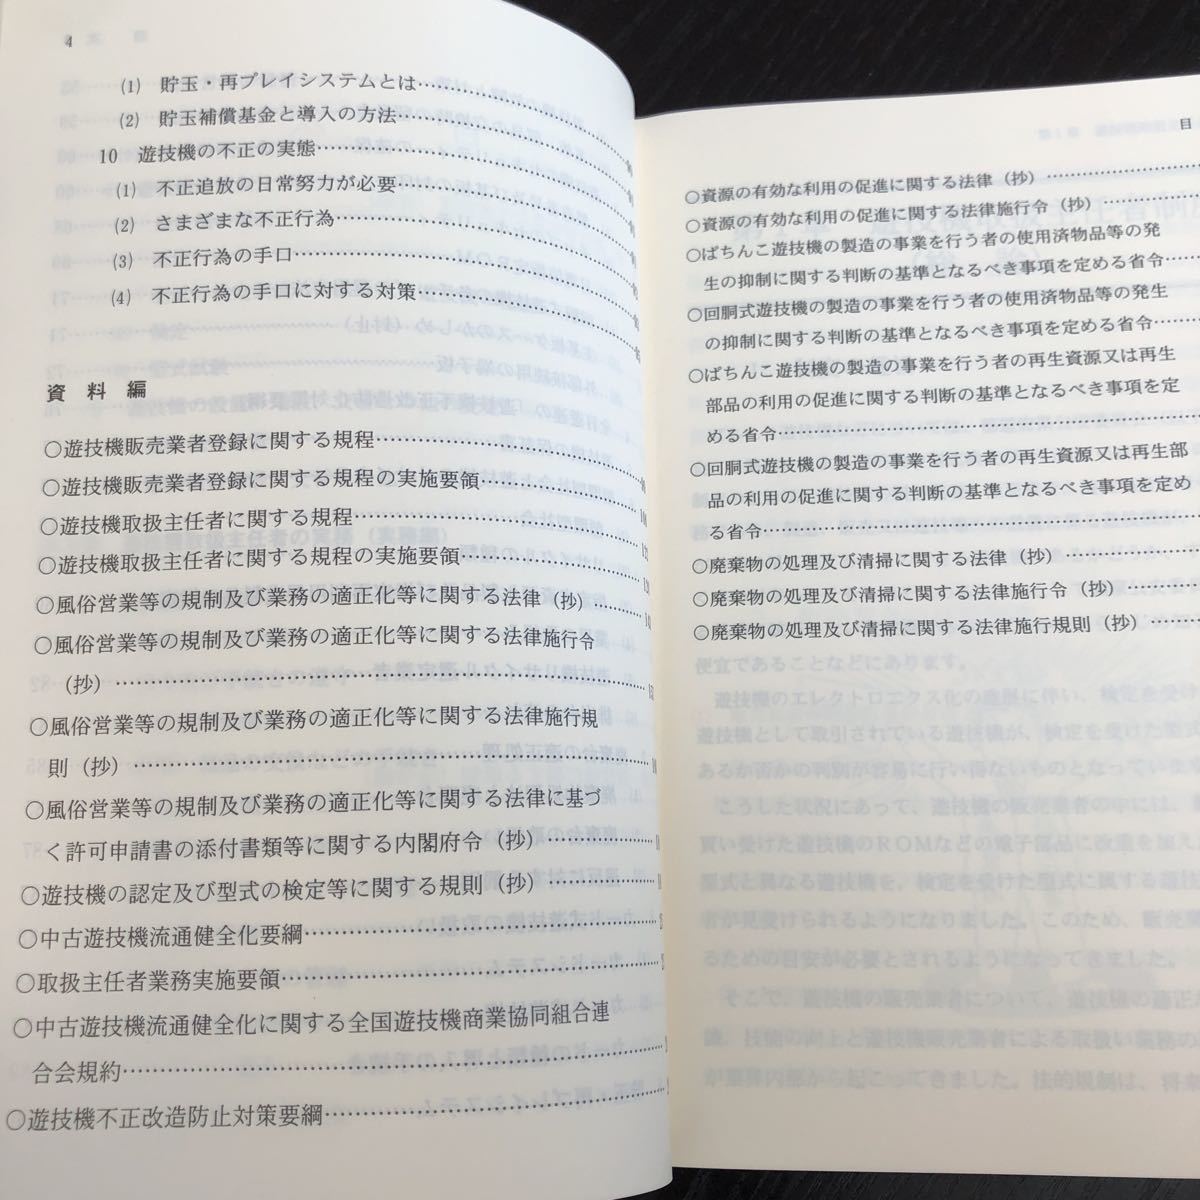 4
(1) 貯玉・再プレイシステムとは
(2) 貯玉補償基金と導入の方法
10 遊技機の不正の実態
(1) 不正追放の日常努力が必要
(2) さまざまな不正行為
(3) 不正行為の手口
(4) 不正行為の手口に対する対策
資料編
○遊技機販売業者登録に関する規程
○遊技機販売業者登録に関する規程の実施要領
○遊技機取扱主任者に関する規程
○遊技機取扱主任者に関する規程の実施要領
○風俗営業等の規制及び業務の適正化等に関する法律（抄）
○風俗営業等の規制及び業務の適正化等に関する法律施行令
（抄）
○風俗営業等の規制及び業務の適正化等に関する法律施行規
則（抄）
○風俗営業等の規制及び業務の適正化等に関する法律に基づ
く許可申請書の添付書類等に関する内閣府令（抄）
○遊技機の認定及び型式の検定等に関する規則（抄）
○中古遊技機流通健全化要綱
○取扱主任者業務実施要領
○中古遊技機流通健全化に関する全国遊技機商業協同組合連
合会規約
○遊技機不正改造防止対策要綱
目
○資源の有効な利用の促進に関する法律（抄）
○資源の有効な利用の促進に関する法律施行令（抄）
○ぱちんこ遊技機の製造の事業を行う者の使用済物品等の発
生の抑制に関する判断の基準となるべき事項を定める省令
○回胴式遊技機の製造の事業を行う者の使用済物品等の発生
の抑制に関する判断の基準となるべき事項を定める省令
○ぱちんこ遊技機の製造の事業を行う者の再生資源又は再生
部品の利用の促進に関する判断の基準となるべき事項を定
める省令
○回胴式遊技機の製造の事業を行う者の再生資源又は再生部
品の利用の促進に関する判断の基準となるべき事項を定め
る省令
○廃棄物の処理及び清掃に関する法律（抄）
○廃棄物の処理及び清掃に関する法律施行令（抄）
○廃棄物の処理及び清掃に関する法律施行規則（抄）